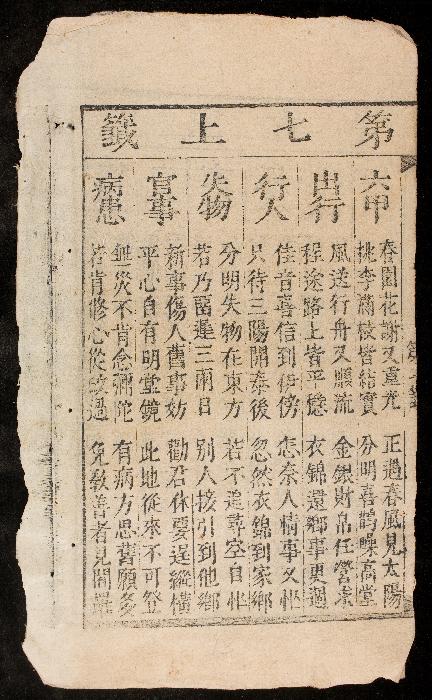 第七上籤
六甲
春園花謝又重光 正遇春風見太陽
桃李滿枝皆結實 分明喜鵲噪高堂
出行
風送行舟又順流 金銀財帛任營求
程途路上皆平穩 衣錦還鄉事更週
行人
佳音喜信到伊傍 怎奈人情事又忙
只待三陽開泰後 忽然衣錦到家鄉
失物
分明失物在東方 若不追尋空自忙
若乃留遲三兩日 別人接引到他鄉
官事
新事傷人舊事妨 勸君休要逞縱橫
平心自有明堂鏡 此地從來不可登
病患
無災不肯念彌陀 有病方思舊願多
若肯修心從改過 免教善者見閻羅